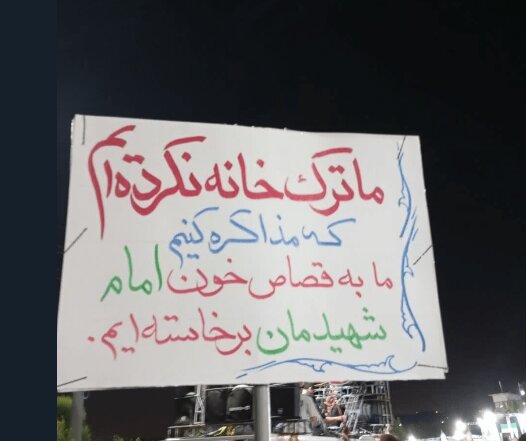 ما ترک خانه نکرده‌ایم
که مذاکره کنیم
ما به قصاص خون امام
شهیدمان برخاسته‌ایم.